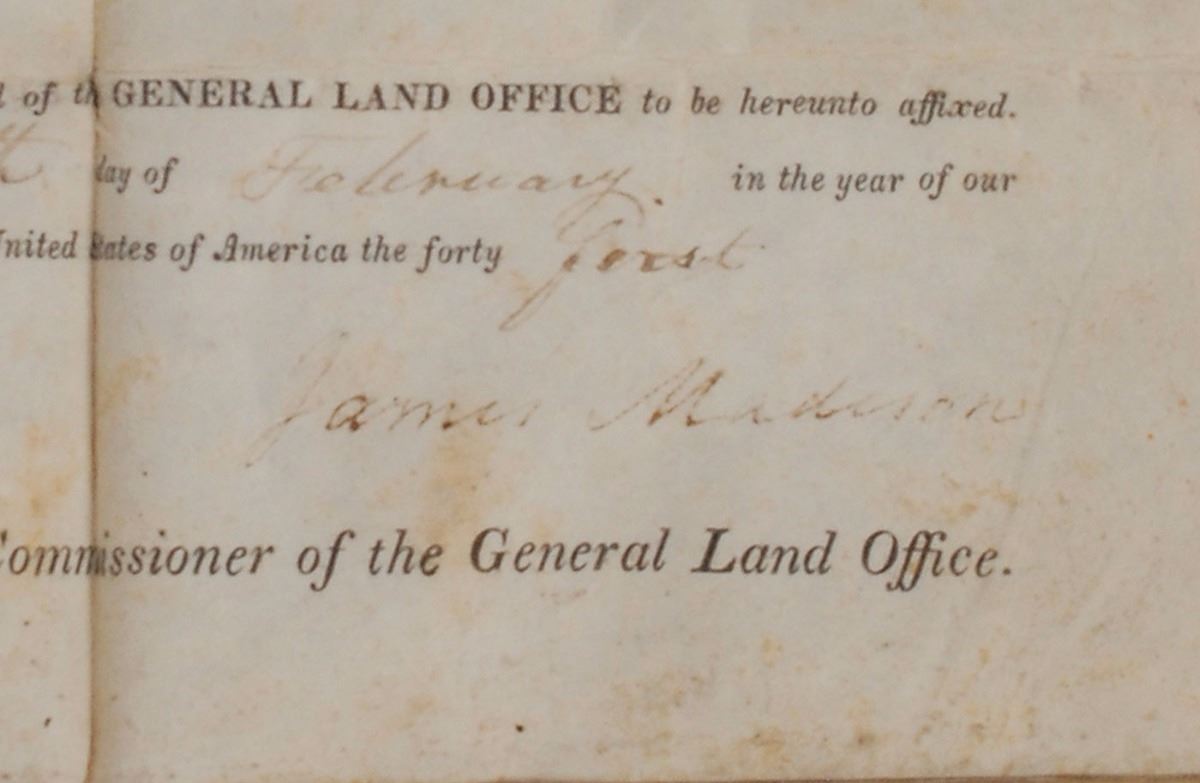 of th GENERAL LAND OFFICE to be hereunto affixed.
day of February in the year of our
United States of America the forty first
James Madison
Commissioner of the General Land Office.